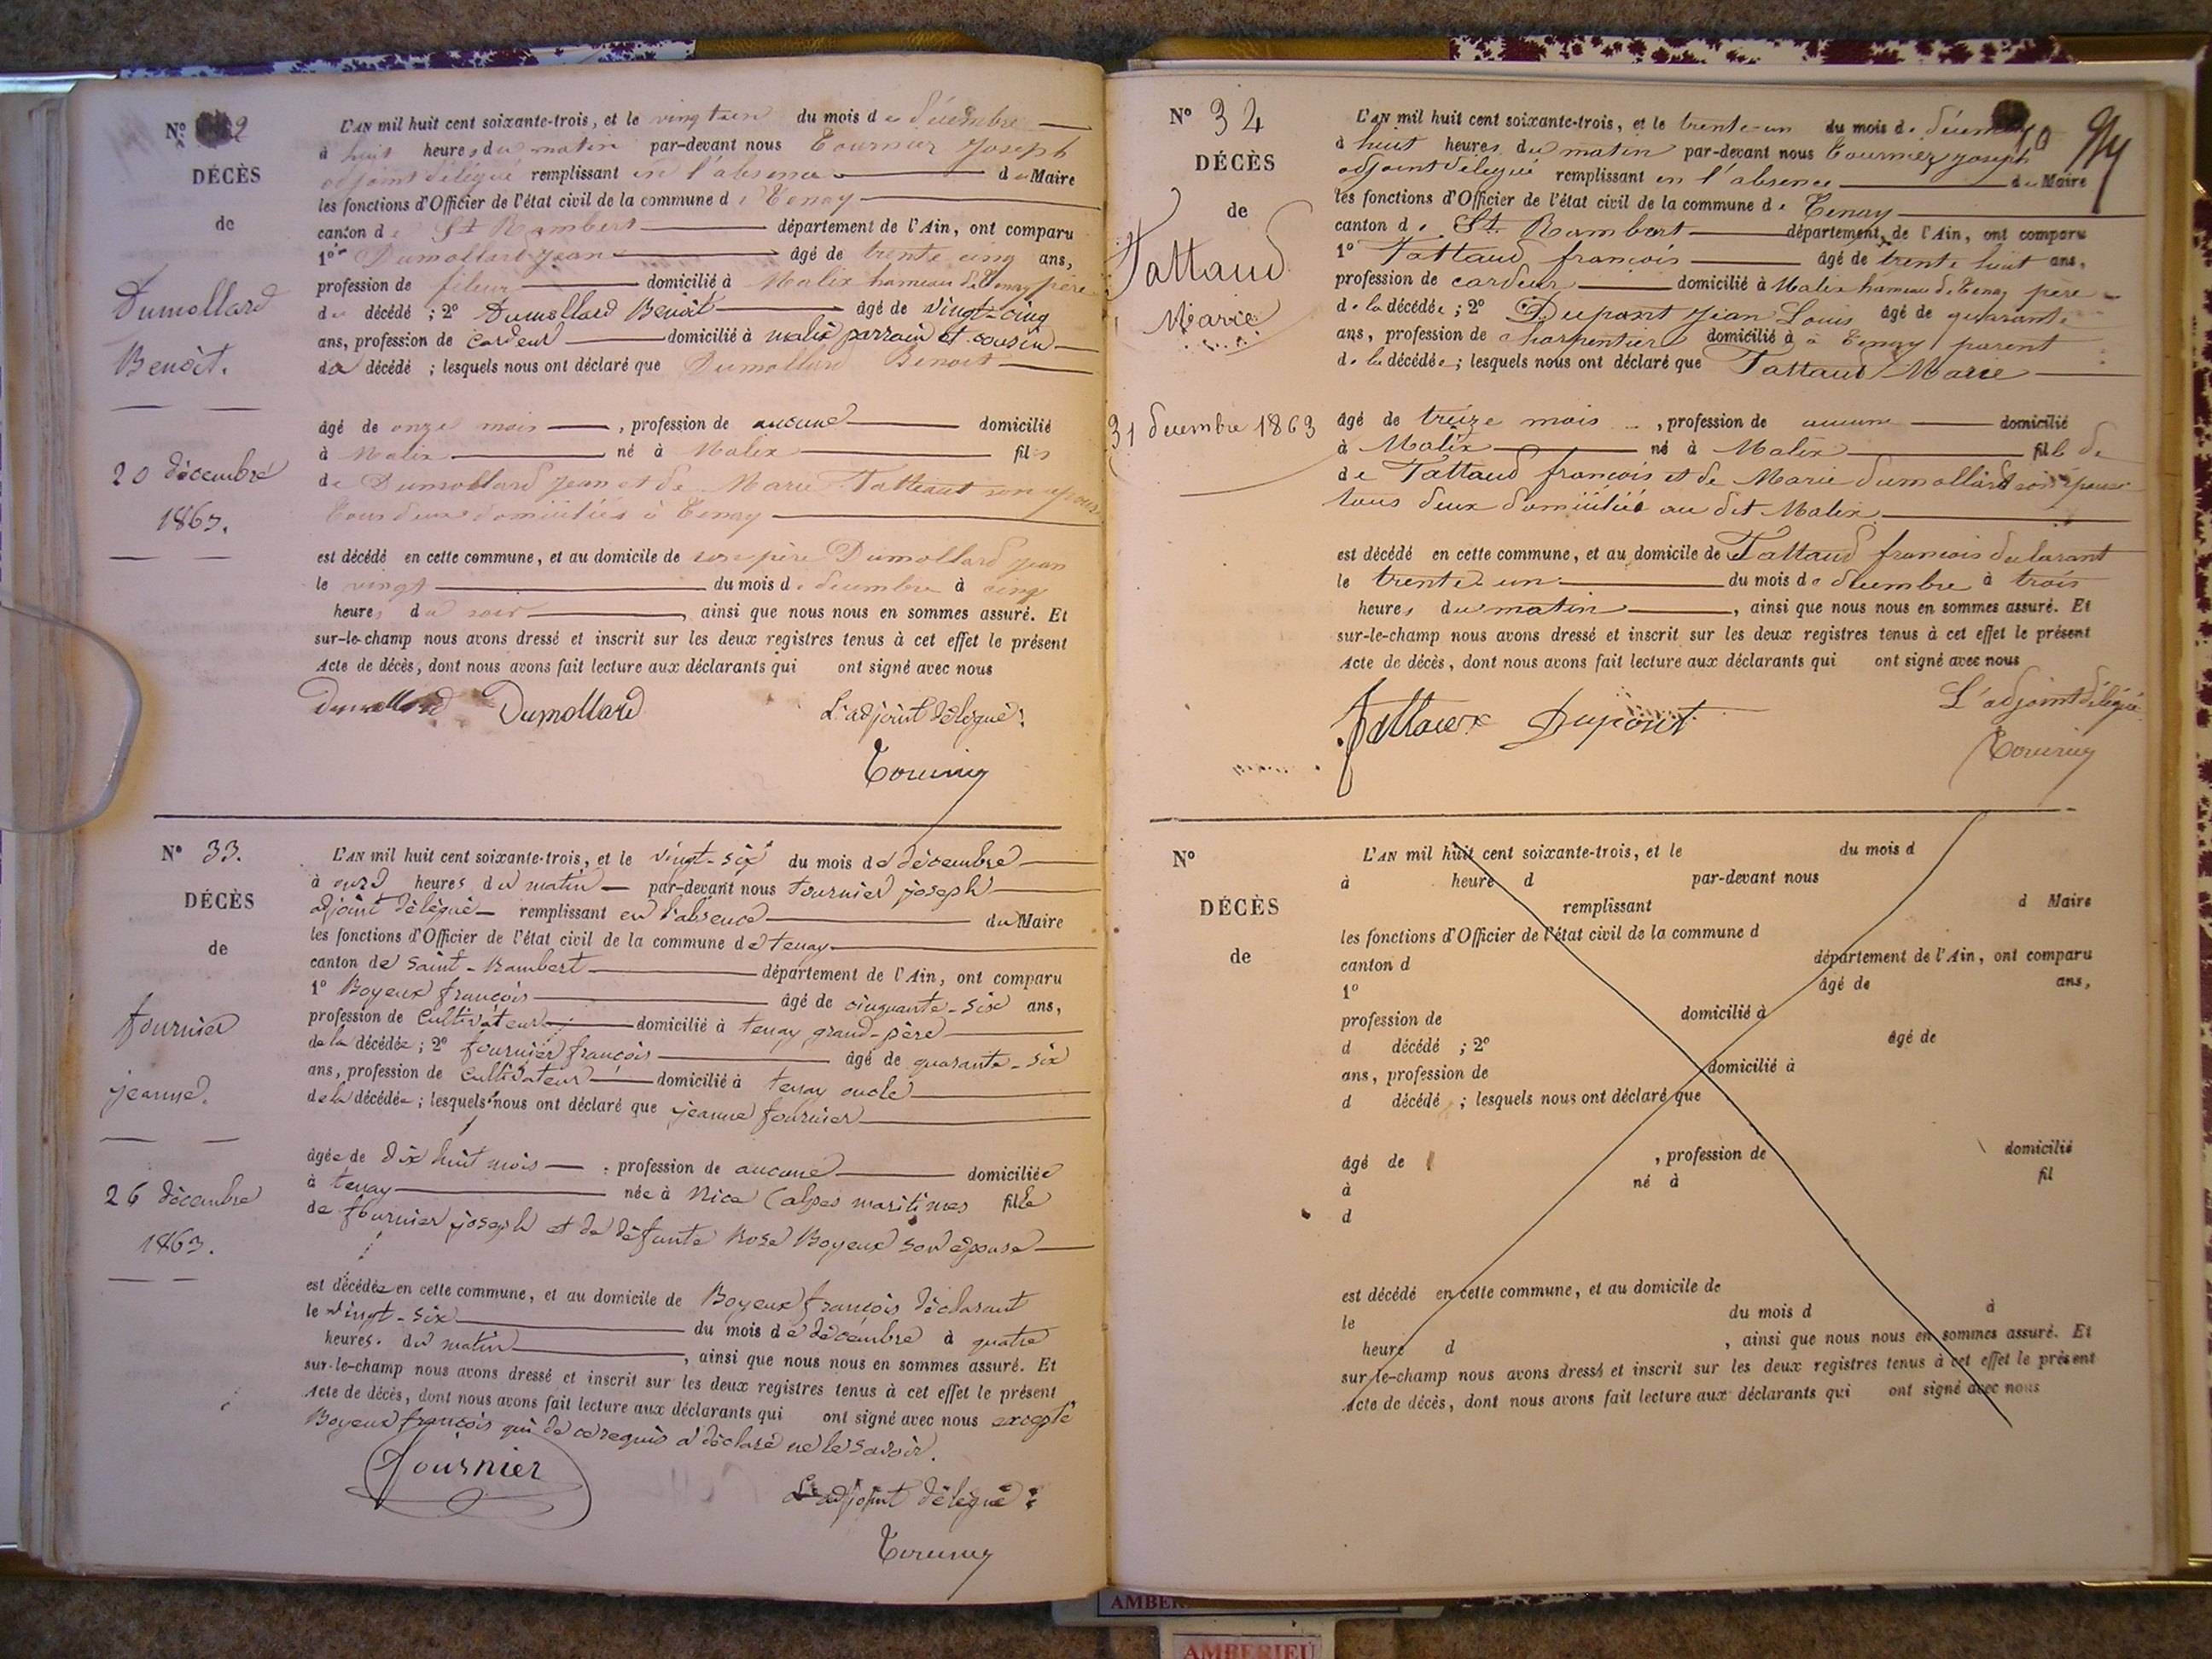 N° 32
DÉCÈS
de
Dumollard
Benoît.
20 décembre
1863.
L'AN mil huit cent soixante-trois, et le vingt un du mois de décembre
à huit heures du matin par-devant nous Tournier Joseph
adjoint délégué remplissant en l'absence du Maire
les fonctions d'Officier de l'état civil de la commune de Tenay
canton de St Rambert département de l'Ain, ont comparu
1° Dumollard Jean âgé de trente cinq ans,
profession de fileur domicilié à Malix hameau de Tenay père
du décédé ; 2° Dumollard Benoît âgé de vingt-cinq
ans, profession de cardeur domicilié à malix parrain et cousin
du décédé ; lesquels nous ont déclaré que Dumollard Benoit
âgé de onze mois , profession de aucune domicilié
à Malix né à Malix fils
de Dumollard Jean et de Marie Tattaut son épouse
tous deux domiciliés à Tenay
est décédé en cette commune, et au domicile de son père Dumollard Jean
le vingt du mois de décembre à cinq
heures du soir , ainsi que nous nous en sommes assuré. Et
sur-le-champ nous avons dressé et inscrit sur les deux registres tenus à cet effet le présent
Acte de décès, dont nous avons fait lecture aux déclarants qui ont signé avec nous
Dumollard Dumollard L'adjoint délégué :
Tournier
N° 33.
DÉCÈS
de
fournier
jeanne.
26 décembre
1863.
L'AN mil huit cent soixante-trois, et le vingt-six du mois de décembre
à onze heures du matin par-devant nous tournier joseph
adjoint délégué remplissant en l'absence du Maire
les fonctions d'Officier de l'état civil de la commune de tenay
canton de saint-Rambert département de l'Ain, ont comparu
1° Boyeux françois âgé de cinquante-six ans,
profession de cultivateur domicilié à tenay grand-père
de la décédée ; 2° fournier françois âgé de quarante-six
ans, profession de cultivateur domicilié à tenay oncle
de la décédée ; lesquels nous ont déclaré que jeanne fournier
âgée de dix huit mois , profession de aucune domiciliée
à tenay née à Nice (alpes maritimes fille
de fournier joseph et de défunte Rose Boyeux son épouse
est décédée en cette commune, et au domicile de Boyeux françois déclarant
le vingt-six du mois de décembre à quatre
heures du matin , ainsi que nous nous en sommes assuré. Et
sur-le-champ nous avons dressé et inscrit sur les deux registres tenus à cet effet le présent
Acte de décès, dont nous avons fait lecture aux déclarants qui ont signé avec nous excepté
Boyeux françois qui de ce requis a déclaré ne le savoir.
fournier
L'adjoint délégué :
Tournier
N° 34
DÉCÈS
de
Tattaud
Marie
31 decembre 1863
L'AN mil huit cent soixante-trois, et le trente-un du mois de décembre
à huit heures du matin par-devant nous Tournier joseph
adjoint délégué remplissant en l'absence du Maire
les fonctions d'Officier de l'état civil de la commune de Tenay
canton de St Rambert département de l'Ain, ont comparu
1° Tattaud françois âgé de trente huit ans,
profession de cardeur domicilié à Malix hameau de Tenay père
de la décédée ; 2° Dupont Jean Louis âgé de quarante
ans, profession de charpentier domicilié à à Tenay parent
de la décédée ; lesquels nous ont déclaré que Tattaud Marie
âgé de treize mois , profession de aucune domicilié
à Malix né à Malix fille de
de Tattaud françois et de Marie Dumollard son épouse
tous deux domiciliés au dit Malix
est décédé en cette commune, et au domicile de Tattaud françois déclarant
le trente-un du mois de décembre à trois
heures du matin , ainsi que nous nous en sommes assuré. Et
sur-le-champ nous avons dressé et inscrit sur les deux registres tenus à cet effet le présent
Acte de décès, dont nous avons fait lecture aux déclarants qui ont signé avec nous
L'adjoint délégué
Tattaux Dupont
Tournier
N°
DÉCÈS
de
L'AN mil huit cent soixante-trois, et le du mois d
à heure d par-devant nous
remplissant d Maire
les fonctions d'Officier de l'état civil de la commune d
canton d département de l'Ain, ont comparu
1° âgé de ans,
profession de domicilié à
d décédé ; 2° âgé de
ans, profession de domicilié à
d décédé ; lesquels nous ont déclaré que
âgé de , profession de domicilié
à né à fil
d
est décédé en cette commune, et au domicile de
le du mois d à
heure d , ainsi que nous nous en sommes assuré. Et
sur-le-champ nous avons dressé et inscrit sur les deux registres tenus à cet effet le présent
Acte de décès, dont nous avons fait lecture aux déclarants qui ont signé avec nous
AMBERIEU